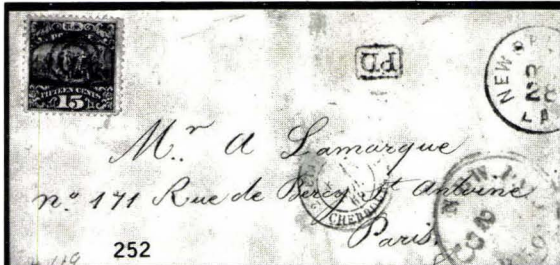 FIFTEEN CENTS
15
PD
NEW OR
LA
Mr. A Lamarque
no 171 Rue de Bercy St Antoine
Paris.
CHERBOU
NEW
252